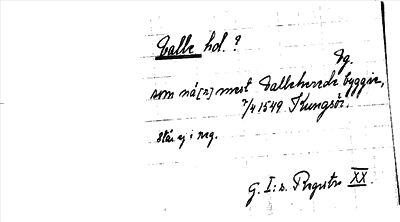 Valle hd. ?
Vg.
som nå[r] mest Vallehærde bygger,
7/4 1549 Kungsör.
står ej i reg.
G. I:s. Registr. XX.